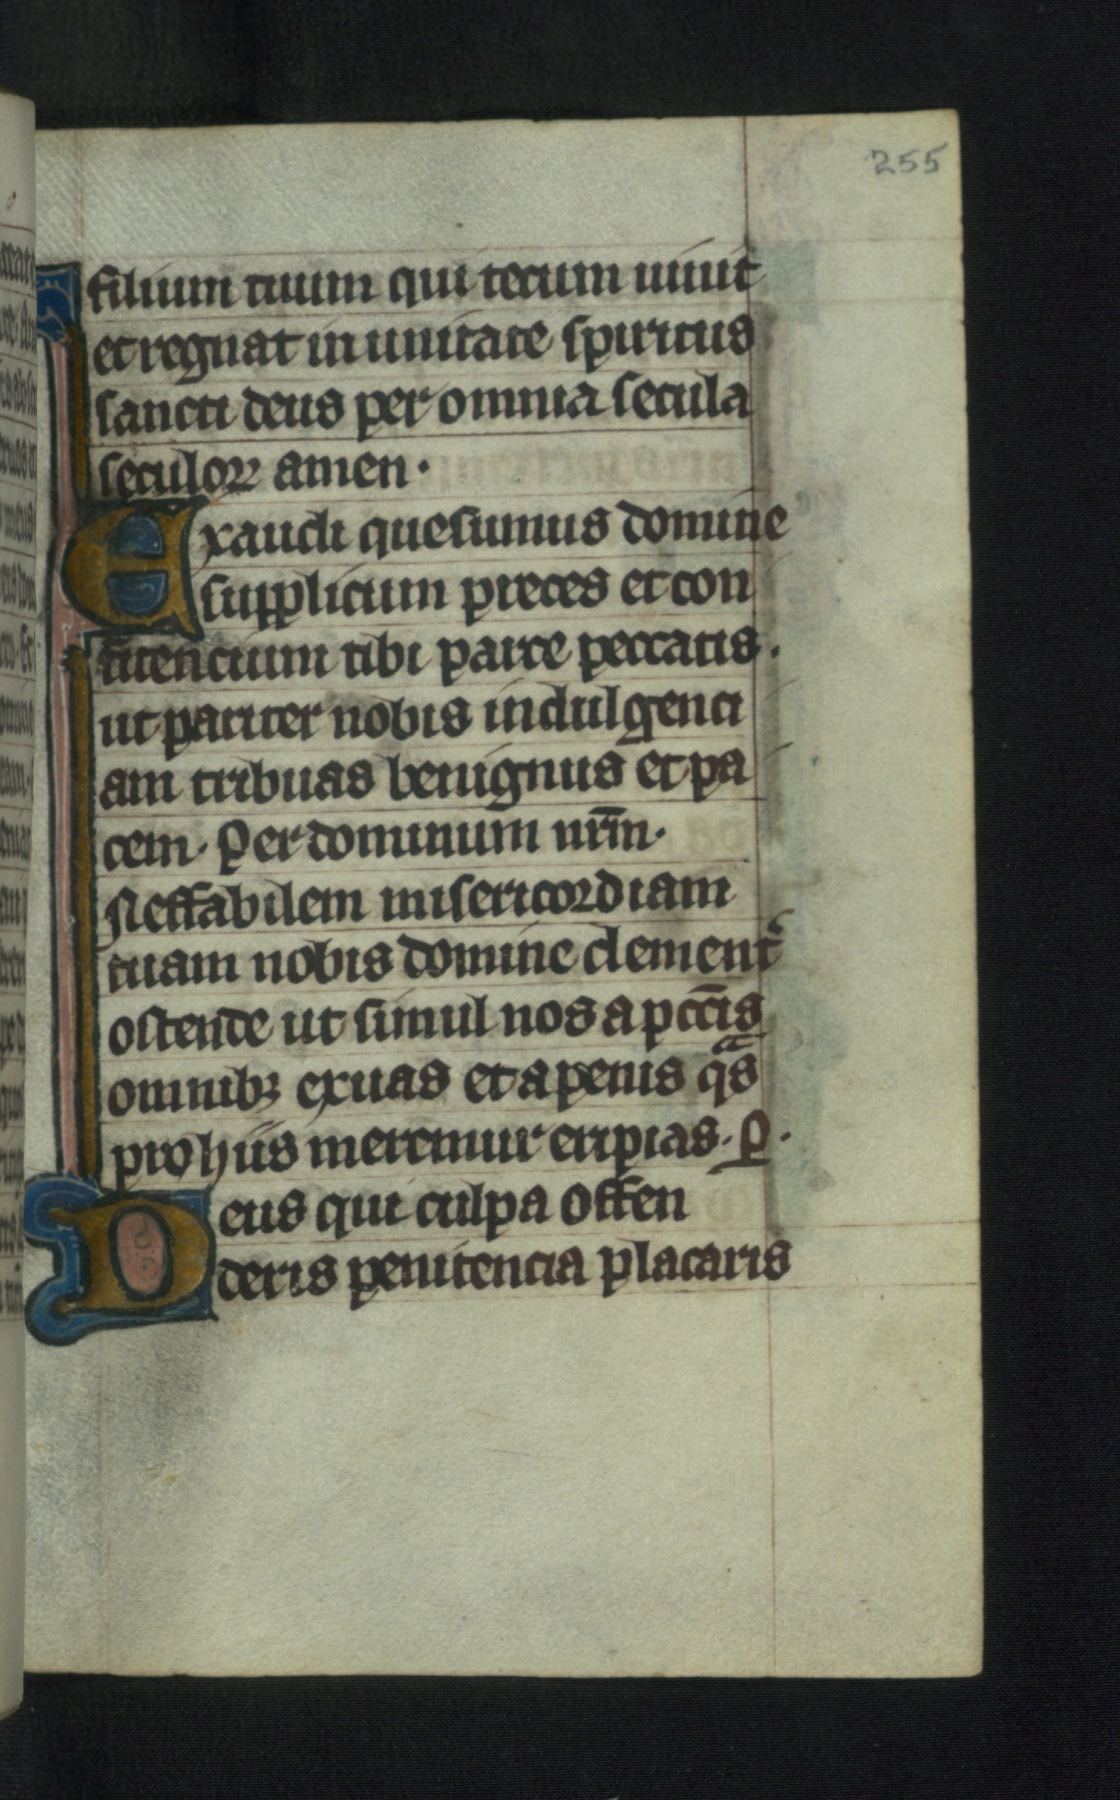 255
filium tuum qui tecum uiuit
et regnat in unitate spiritus
sancti deus per omnia secula
seculoꝝ amen·
Exaudi quesumus domine
supplicum preces et con
fitencium tibi parce peccatis.
ut pariter nobis indulgenci
am tribuas benignus et pa
cem· Per dominum nr̄m·
Neffabilem misericordiam
tuam nobis domine clement̉
ostende ut simul nos a pcc̄is
omnibꝫ exuas et a penis qͣs
pro hiis meremur eripias· ꝑ·
Deus qui culpa offen
deris penitencia placaris